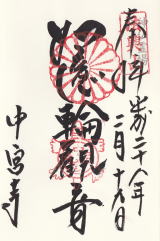 奉拝
平成二十八年
二月十六日
如意輪観音
中宮寺